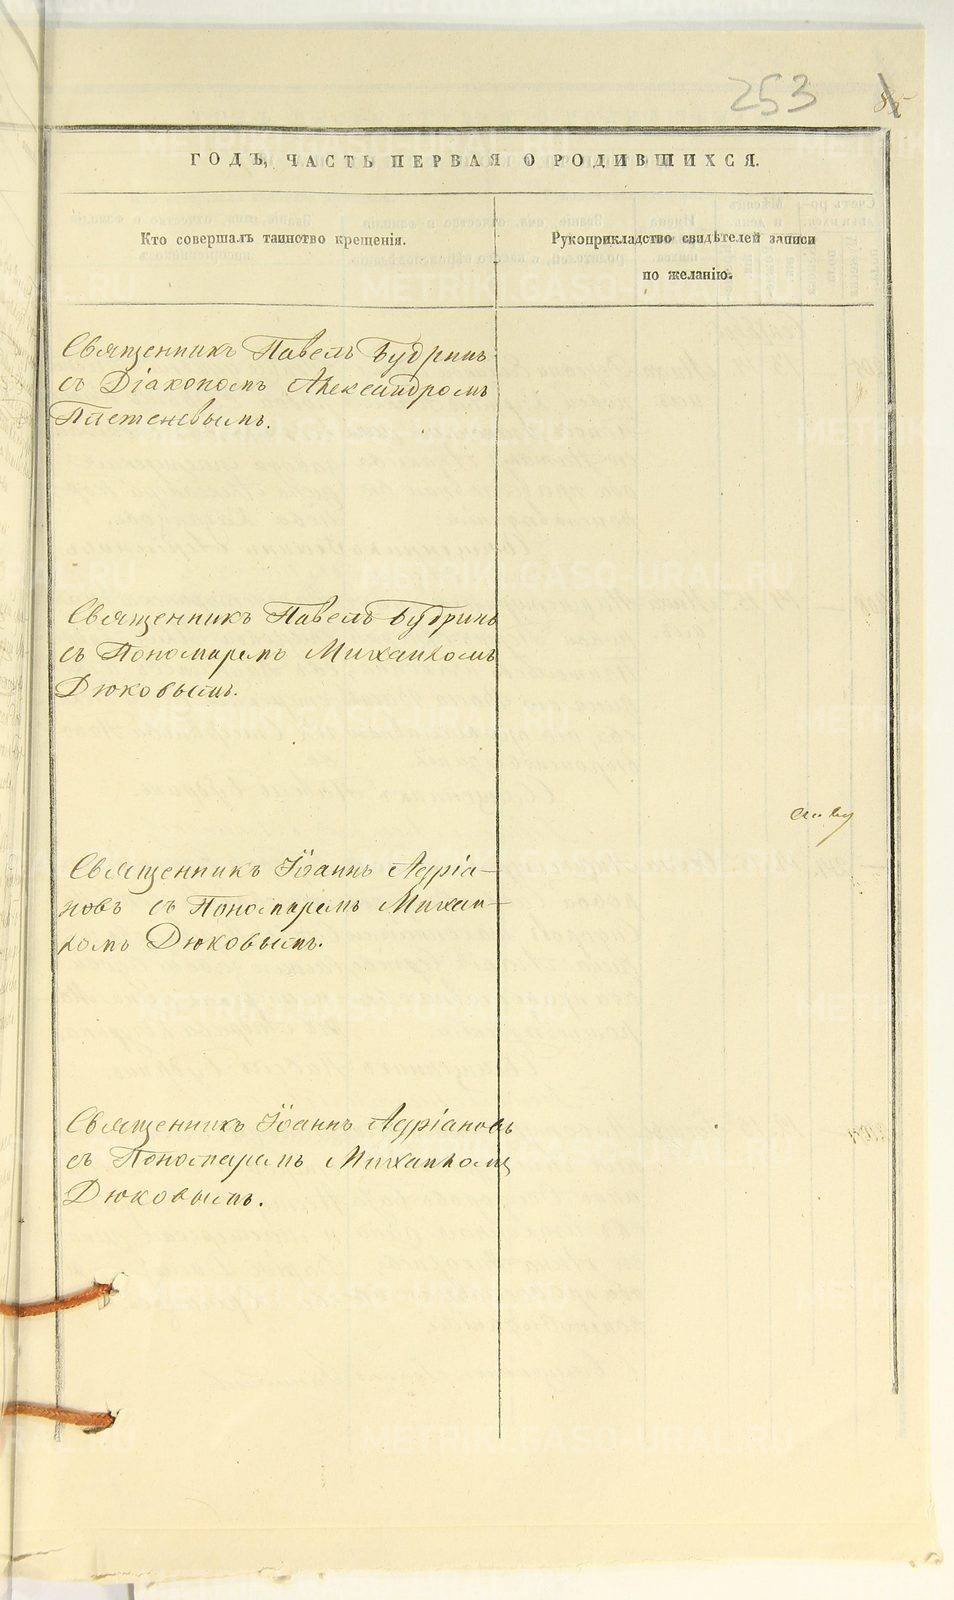 253
ГОДЪ, ЧАСТЬ ПЕРВАЯ О РОДИВШИХСЯ.
Кто совершалъ таинство крещенія.
Рукоприкладство свидѣтелей записи
по желанію.
Священникъ Павелъ Будринъ
съ Діакономъ Александромъ
Плетеневымъ.
Священникъ Павелъ Будринъ
съ Пономаремъ Михаиломъ
Дюковымъ.
Священникъ Іоаннъ Адріа-
новъ съ Пономаремъ Михаи-
ломъ Дюковымъ.
Священникъ Іоаннъ Адріановъ
съ Пономаремъ Михаиломъ
Дюковымъ.
METRIKI.GASO-URAL.RU